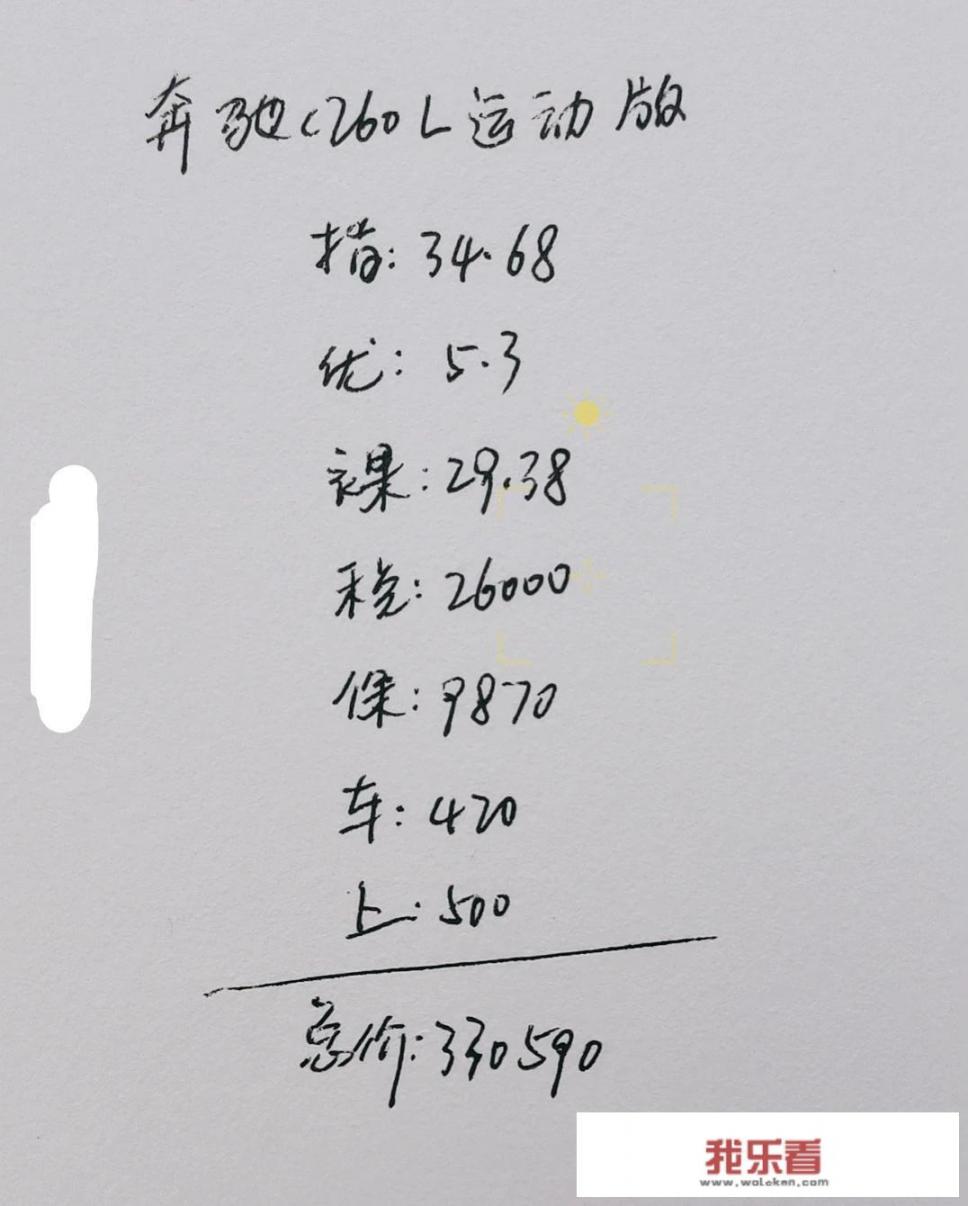 奔驰C260L运动版
指: 34.68
优: 5.3
裸: 29.38
税: 26000
保: 9870
车: 420
上: 500
总价: 330590
我乐看
www.woleken.com